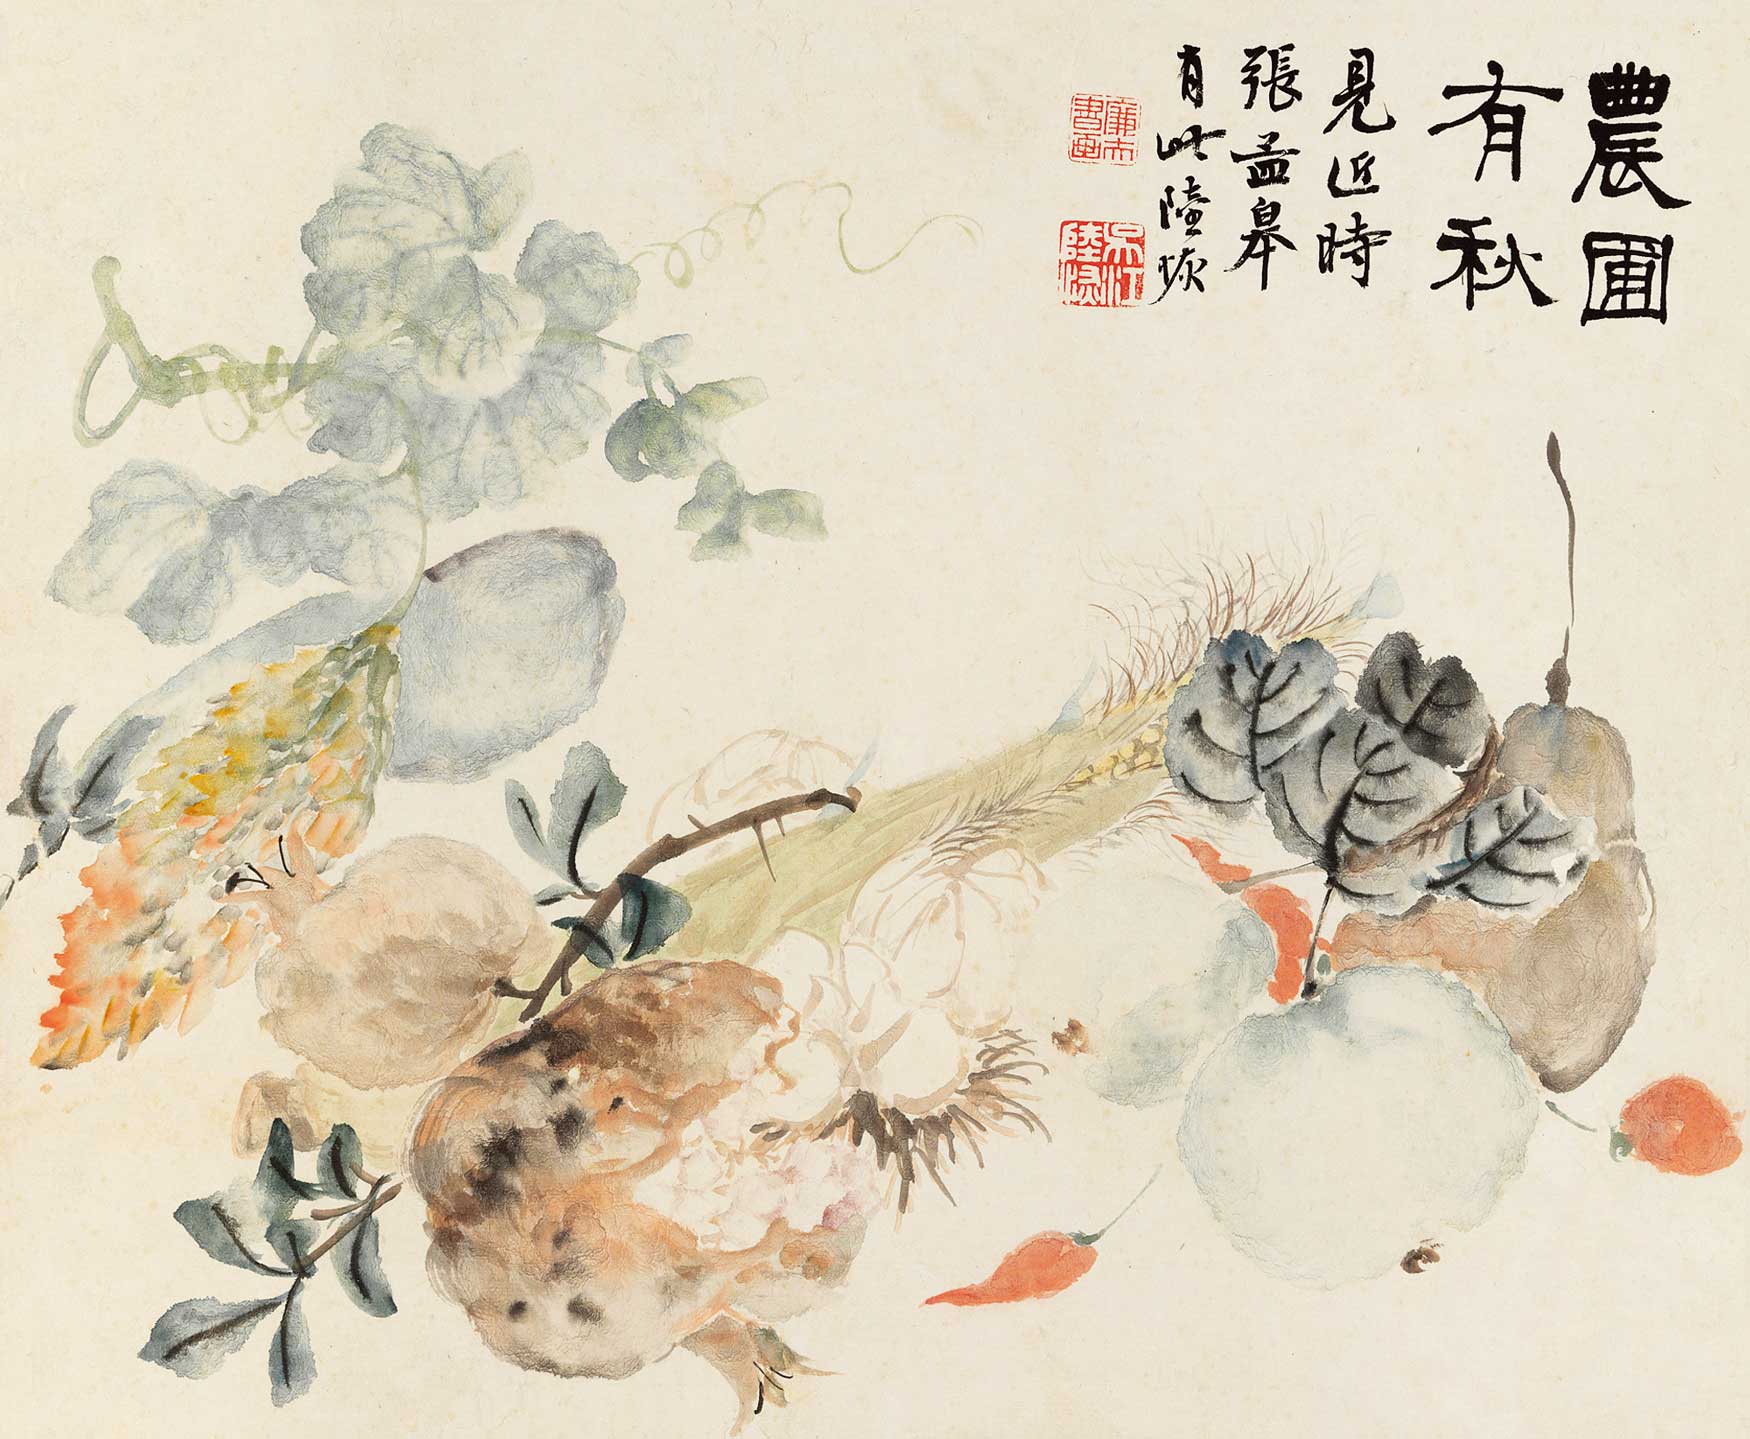 農圃
有秋
見近時
張孟皋
有此陸恢
廉夫
書畫
吳江
陸恢